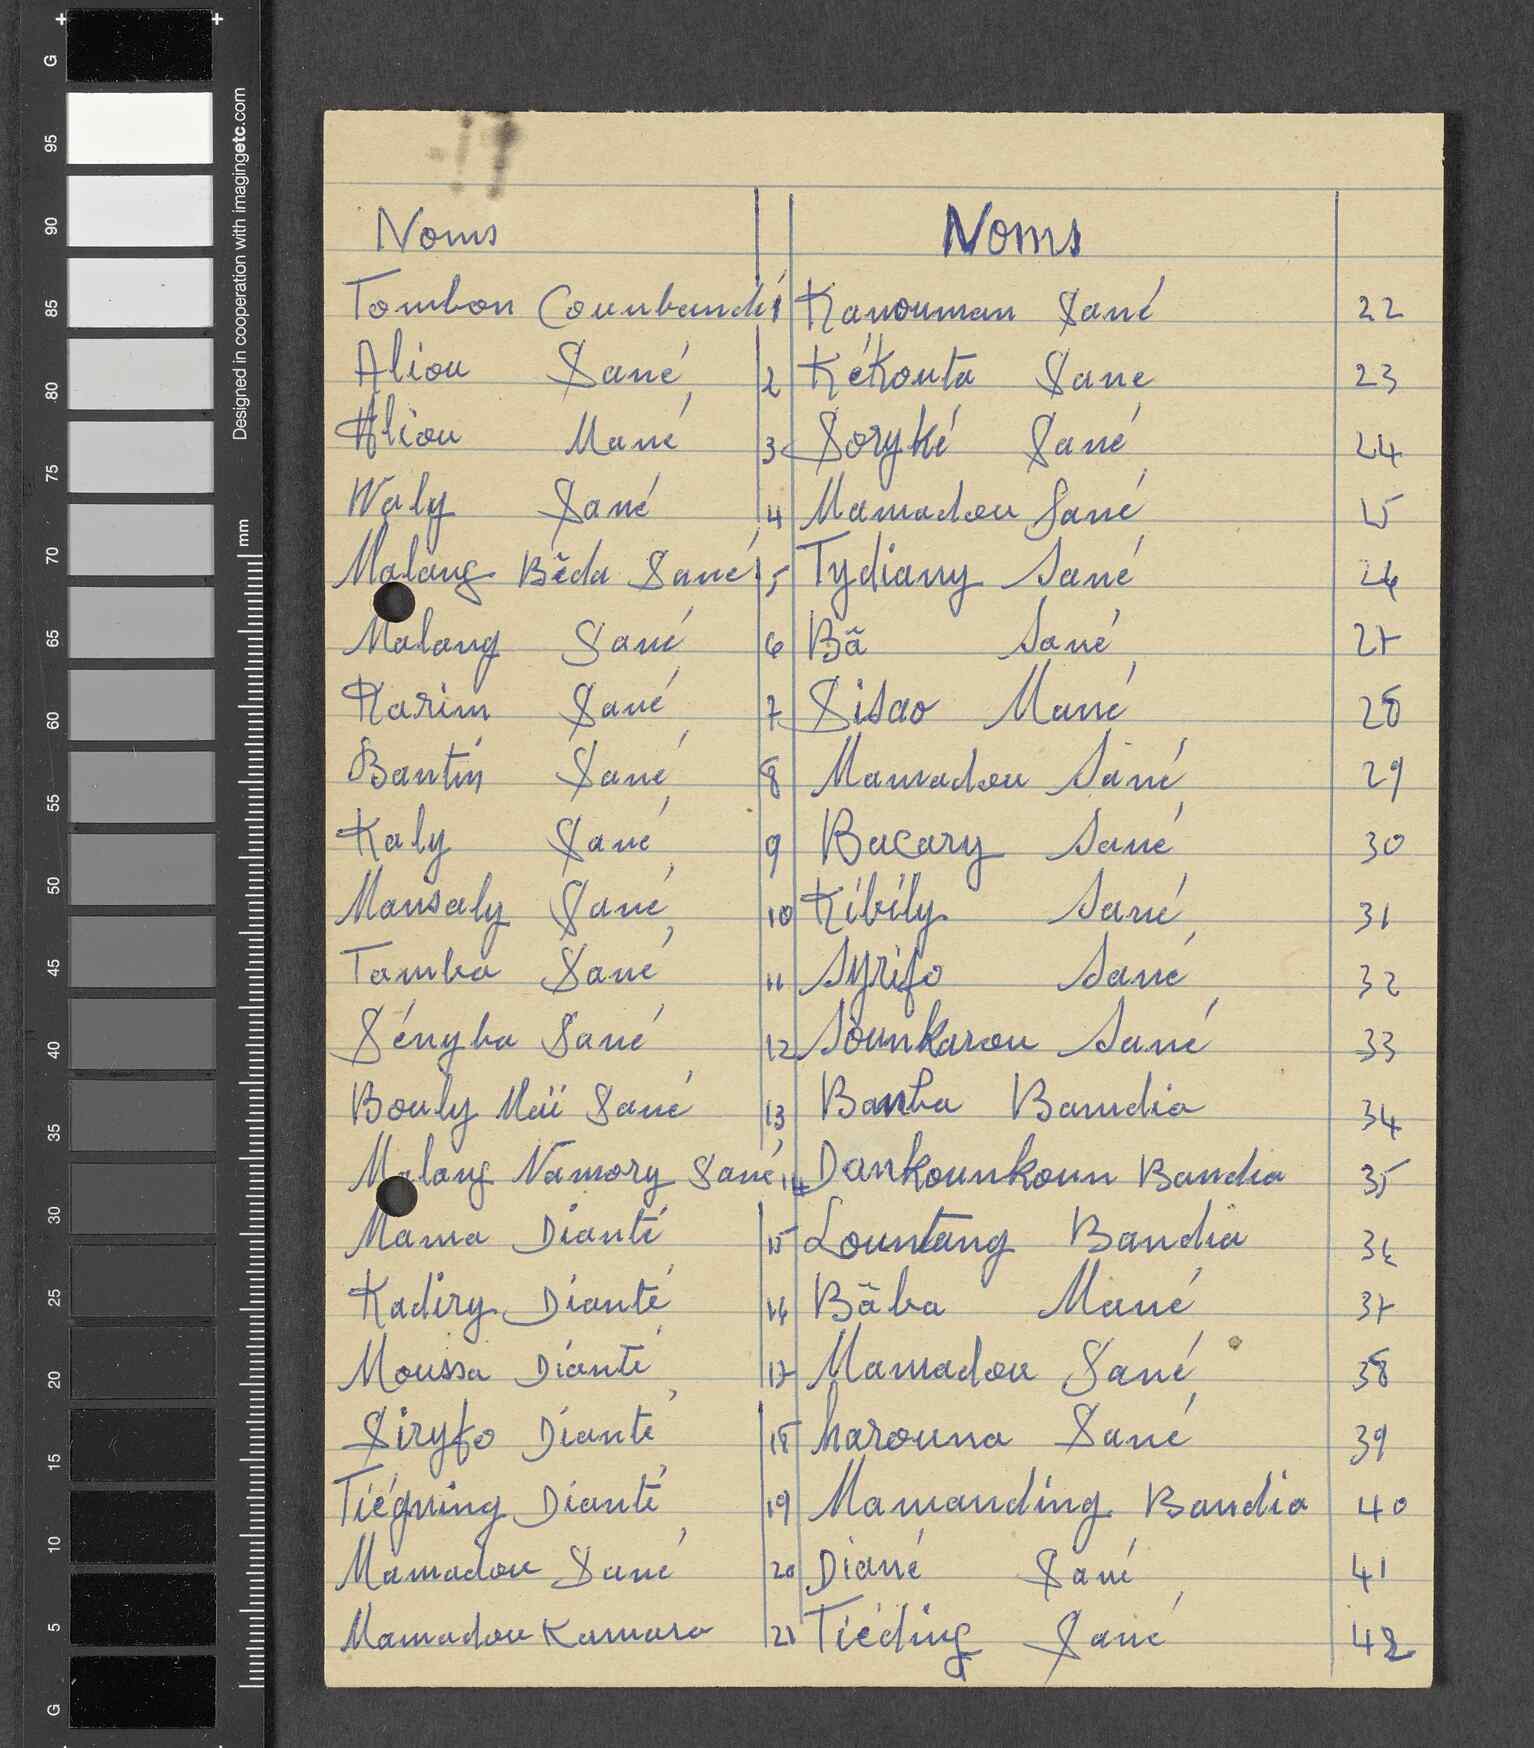 Noms
Tombon Counbandi 1
Aliou Sané 2
Aliou Mané 3
Waly Sané 4
Malang Bĕda Sané 5
Malang Sané 6
Karim Sané 7
Bantin Sané 8
Kaly Sané 9
Mansaly Sané 10
Tamba Sané 11
Sényba Sané 12
Bouly Maï Sané 13
Malang Namory Sané 14
Mama Dianté 15
Kadiry Dianté 16
Moussa Dianté 17
Siryfo Dianté 18
Tiégning Dianté 19
Mamadou Sané 20
Mamadou Kamara 21
Noms
Kanouman Sané 22
Kékouta Sane 23
Soryké Sané 24
Mamadou Sané 25
Tydiany Sané 26
Bã Sané 27
Sisao Mané 28
Mamadou Sané 29
Bacary Sané 30
Kibily Sané 31
Syrifo Sané 32
Sounkarou Sané 33
Banba Bamdia 34
Dankounkoun Bandia 35
Lountang Bandia 36
Bãba Mané 37
Mamadou Sané 38
harouna Sané 39
Mamanding Bandia 40
Diané Sané 41
Tiéding Sané 42
G
95
90
85
80
75
70
65
60
55
50
45
40
35
30
25
20
15
10
5
G
Designed in cooperation with imagingetc.com
mm